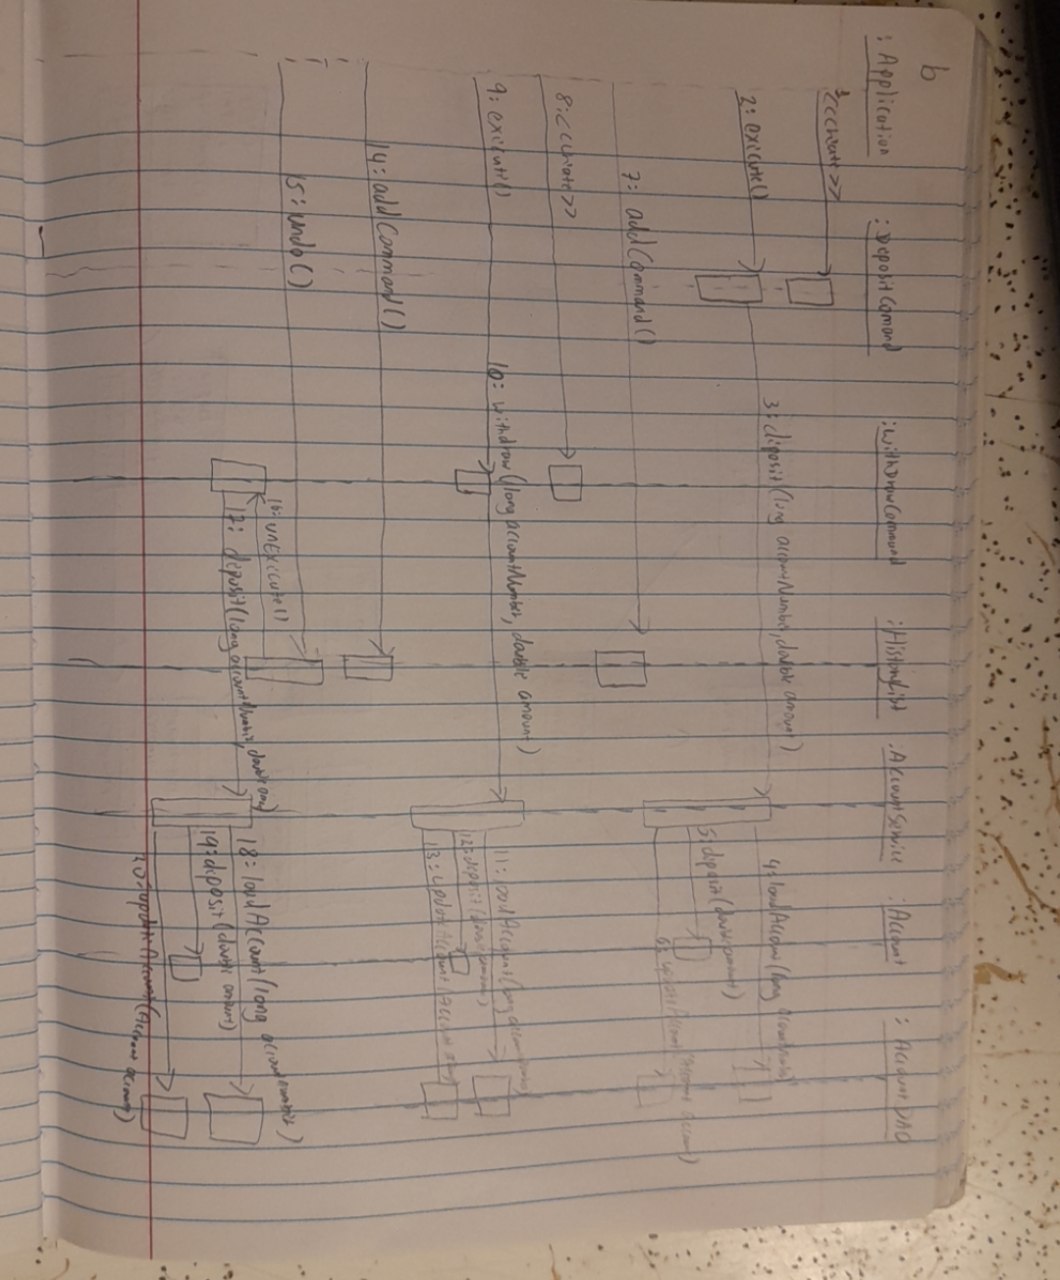 b
:Application
:DepositComand
:WithDrawCommand
:HistoryList
:AccountService
:Account
:AccountDAO
1:<<create>>
2: execute()
3: deposit(long accountNumber, double amount)
4: loadAccount(long accountNumber)
5: deposit(double amount)
6: updateAccount(Account account)
7: addCommand()
8: <<create>>
9: execute()
10: withdraw(long accountNumber, double amount)
11: loadAccount(long accountNumber)
12: deposit(double amount)
13: updateAccount(Account
14: addCommand()
15: undo()
16: unExecute()
17: deposit(long accountNumber, double
18: loadAccount(long accountNumber)
19: deposit(double amount)
20: updateAccount(Account account)